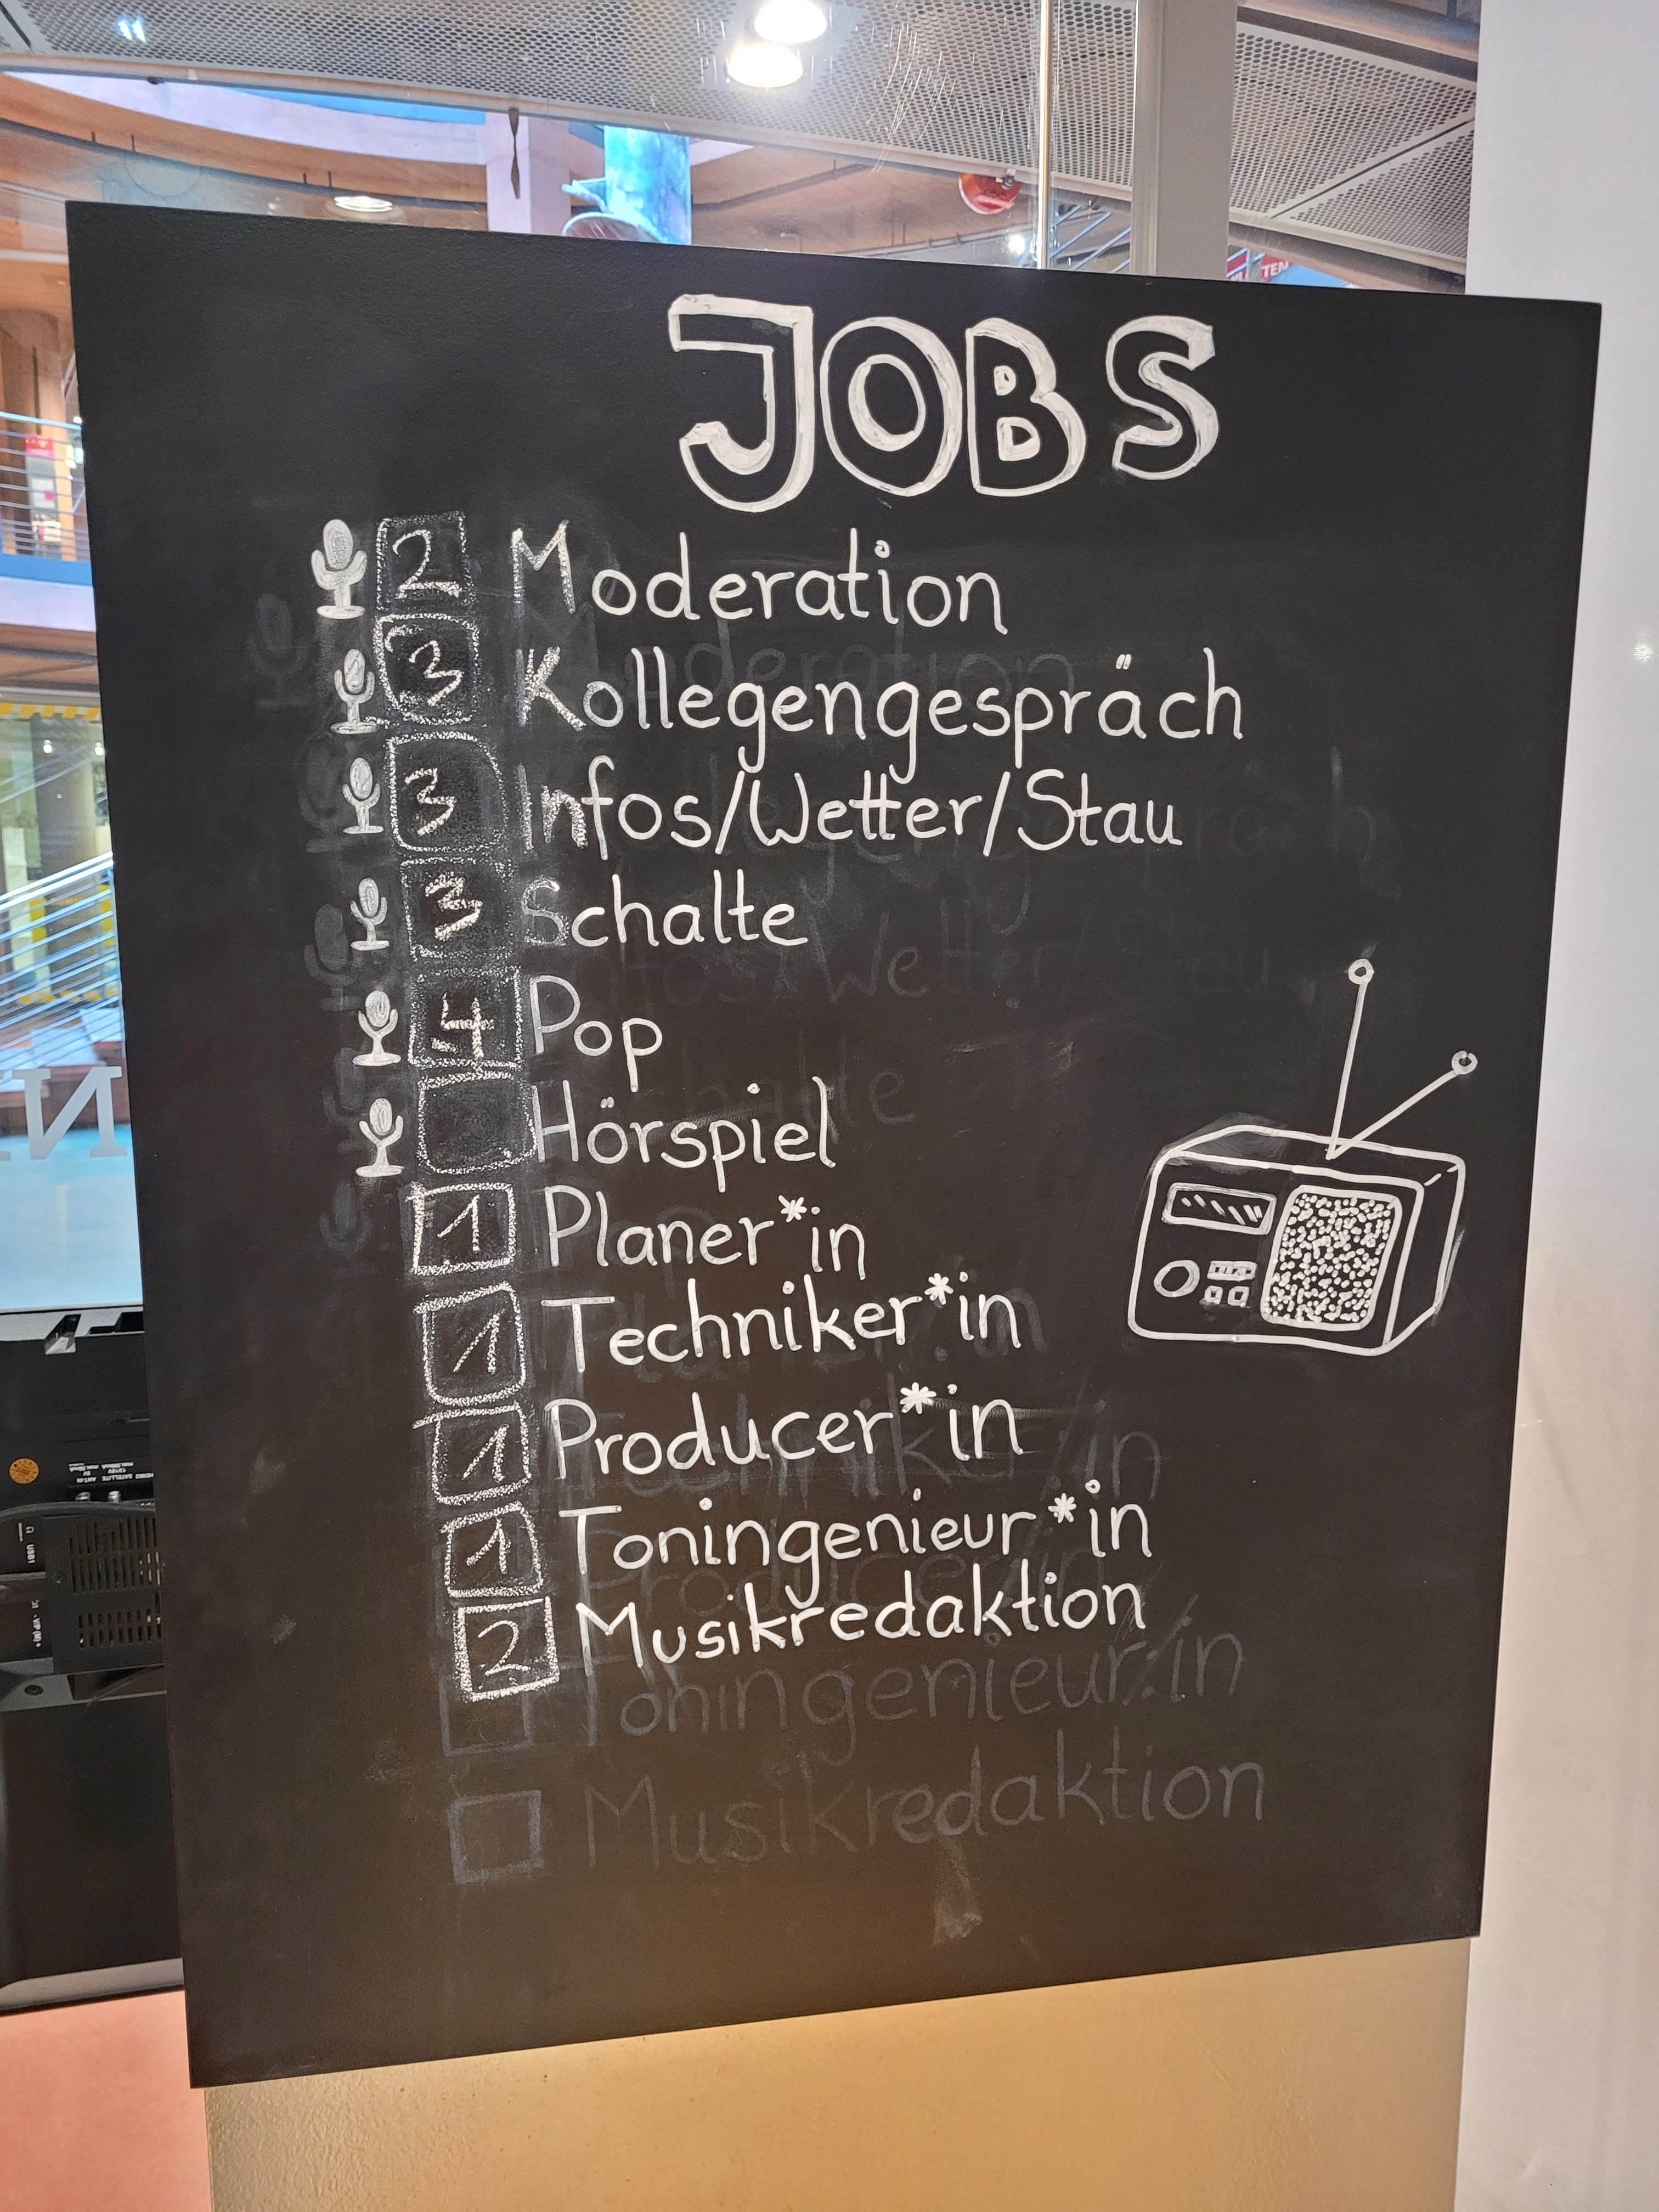 JOBS
2 Moderation
3 Kollegengespräch
3 Infos/Wetter/Stau
3 Schalte
4 Pop
Hörspiel
1 Planer*in
1 Techniker*in
1 Producer*in
1 Toningenieur*in
2 Musikredaktion
Toningenieur:in
Musikredaktion